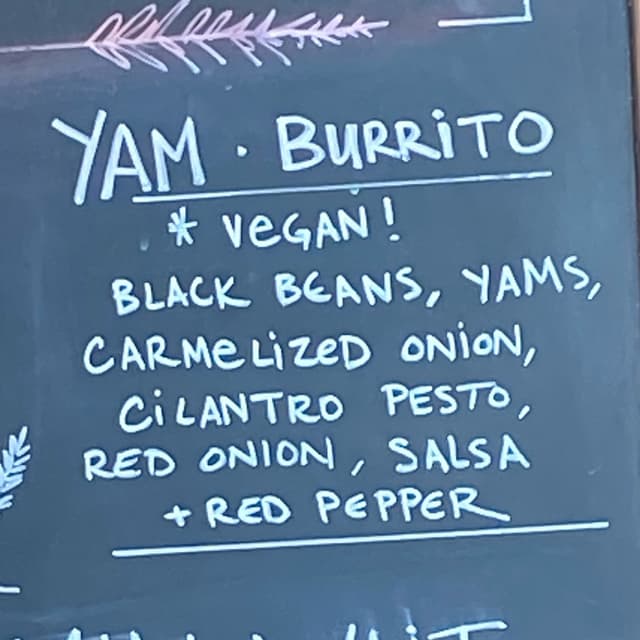 YAM · BURRiTO
* VeGAN!
BLACK BEANS, YAMS,
CARMeLiZeD ONiON,
CiLANTRO PESTO,
RED ONION, SALSA
+ RED PEPPER